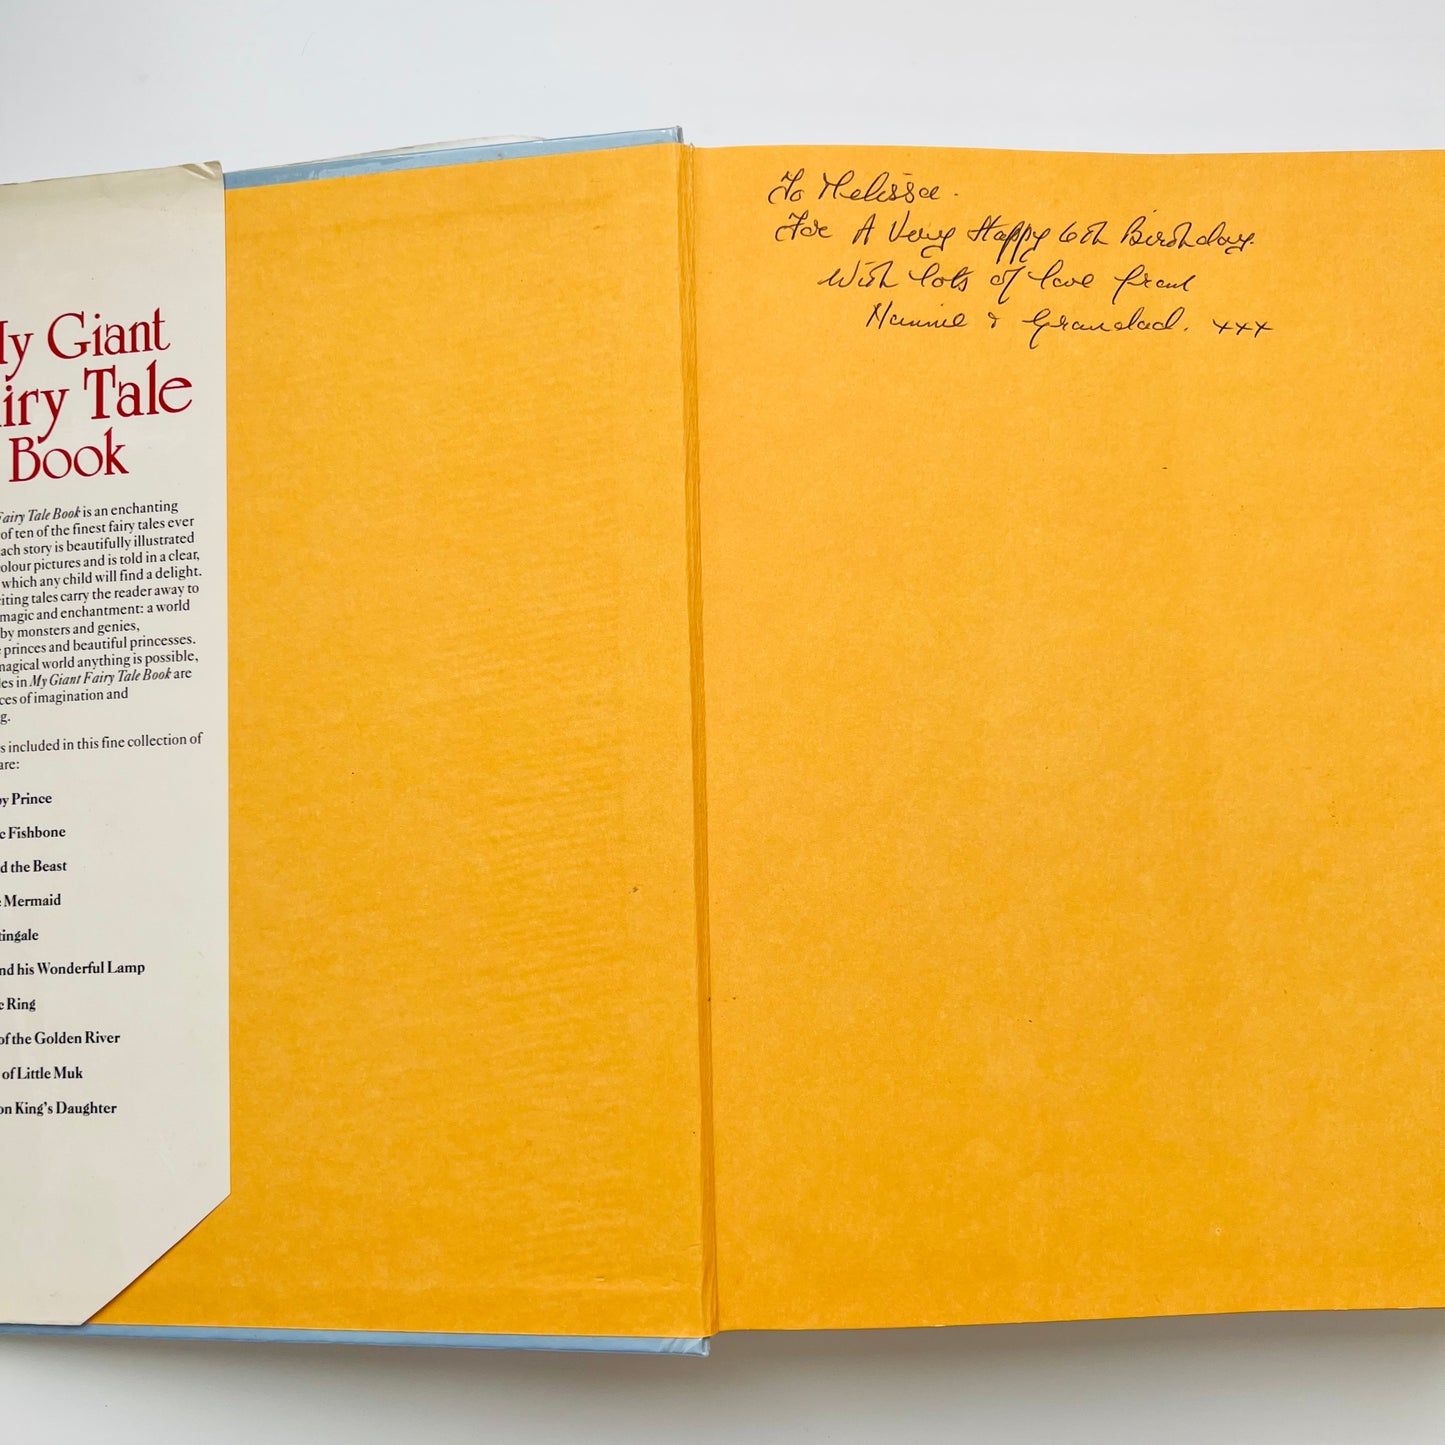 My Giant
Fairy Tale
Book
Fairy Tale Book is an enchanting
of ten of the finest fairy tales ever
ach story is beautifully illustrated
olour pictures and is told in a clear,
which any child will find a delight.
iting tales carry the reader away to
magic and enchantment: a world
by monsters and genies,
princes and beautiful princesses.
magical world anything is possible,
les in My Giant Fairy Tale Book are
ces of imagination and
g.
s included in this fine collection of
are:
py Prince
c Fishbone
d the Beast
e Mermaid
tingale
nd his Wonderful Lamp
c Ring
of the Golden River
of Little Muk
on King's Daughter
To Melissa.
For A Very Happy 6th Birthday.
With lots of love from
Nannie & Grandad. xxx